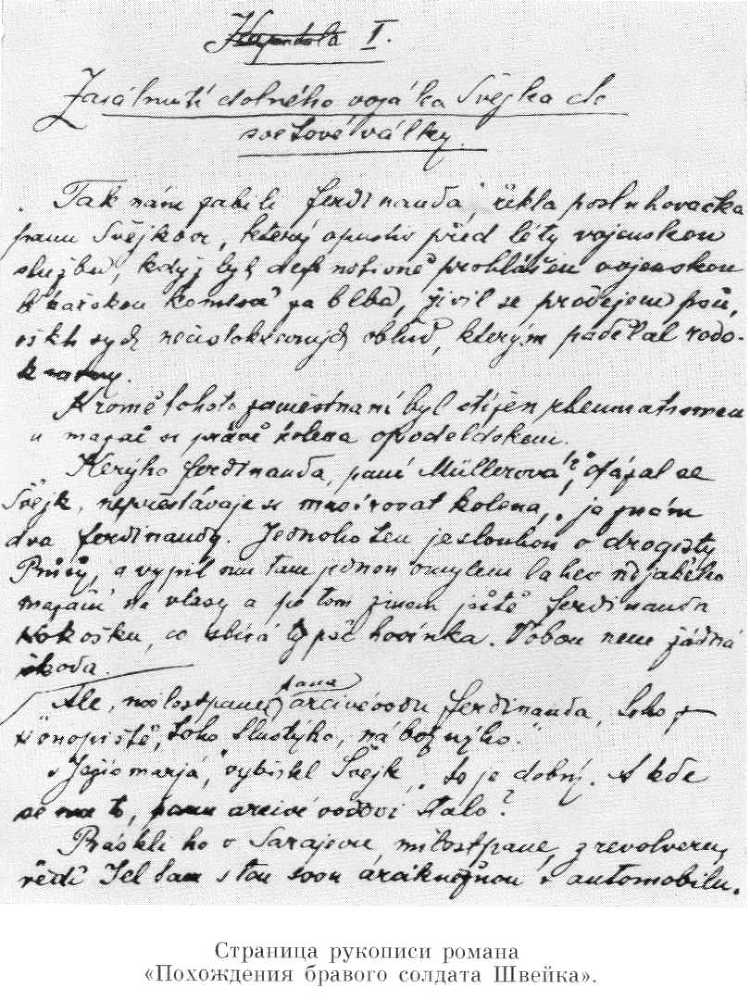 Kapitola I.
Zasáhnutí dobrého vojáka Švejka do
světové války.
"Tak nám zabili Ferdinanda", řekla posluhovačka
panu Švejkovi, který opustiv před léty vojenskou
službu, když byl definitivně prohlášen vojenskou
lékařskou komisí za blba, živil se prodejem psů,
ošklivých nečistokrevných oblud, kterým padělal rodo-
kmeny.
Kromě tohoto zaměstnání byl stižen rheumatismem
a mazal si právě kolena opodeldokem.
"Kerýho Ferdinanda, paní Müllerová?", otázal se
Švejk, nepřestávaje si masírovat kolena, "já znám
dva Ferdinandy. Jednoho ten je sluhou u drogisty
Průši, a vypil mu tam jednou omylem lahev nějakého
mazání na vlasy a potom znám ještě Ferdinanda
Kokošku, co sbírá ty psí hovínka. Vobou není žádná
škoda.
"Ale, milostpane, pana arcivévodu Ferdinanda, toho z
Konopiště, toho tlustýho, nábožnýho."
"Ježíšmarjá", vyhrkl Švejk, "to je dobrý. A kde
se mu to, panu arcivévodovi stalo?
"Práskli ho v Sarajevu, milostpane, z revolveru,
vědí. Jel tam s tou svou arcikněžnou v automobilu.
Страница рукописи романа
«Похождения бравого солдата Швейка».